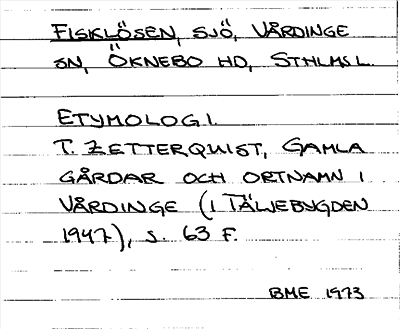 FISKLÖSEN, SJÖ, VÅRDINGE
SN, ÖKNEBO HD, STHLMS L.
ETYMOLOGI.
T. ZETTERQUIST, GAMLA
GÅRDAR OCH ORTNAMN I
VÅRDINGE (I TÄLJEBYGDEN
1947), S. 63 F.
BME 1973